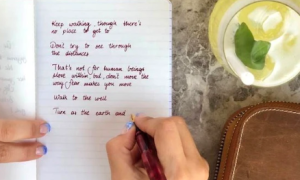 Keep walking, though there's
no place to get to
Don't try to see through
the distances
That's not for human beings
Move within but don't move the
way fear makes you move
Walk to the well
Turn as the earth and